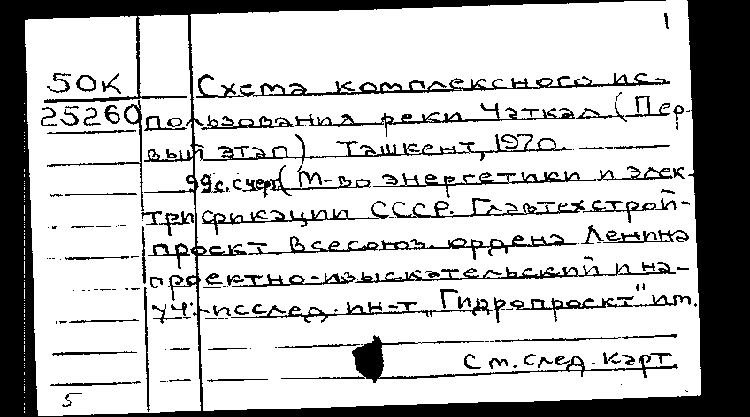 1
50К Схема комплексного ис-
25260 пользования реки Чаткал (Пер-
вый этап) Ташкент, 1970.
99с. с черт (М-во энергетики и элек-
трификации СССР. Главтехстрой-
проект Всесоюз. ордена Ленина
проектно-изыскательский и на-
уч.-исслед. ин-т "Гидропроект" им.
См. след. карт.
5